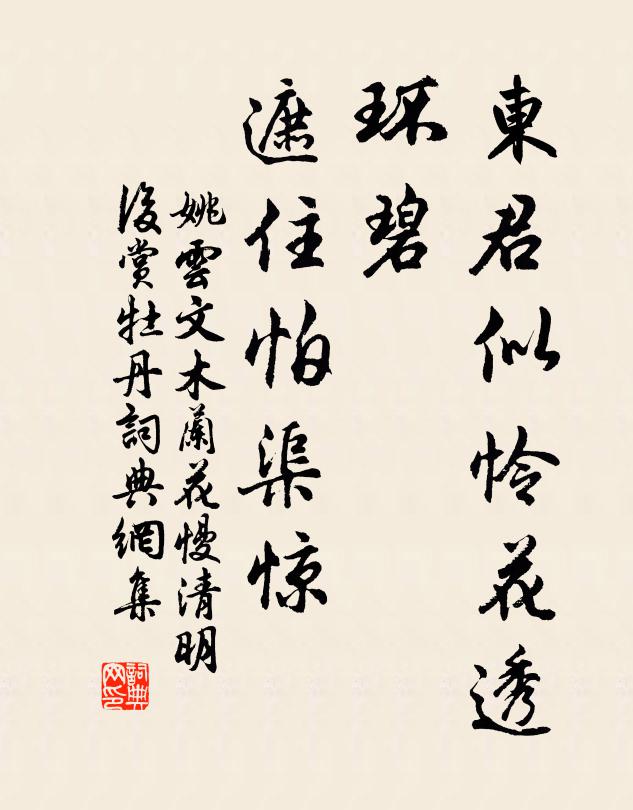 東君似怜花透
环碧
遮住怕渠惊
姚雲文木蘭花慢清明
後賞牡丹詞典網集
詞典
网印